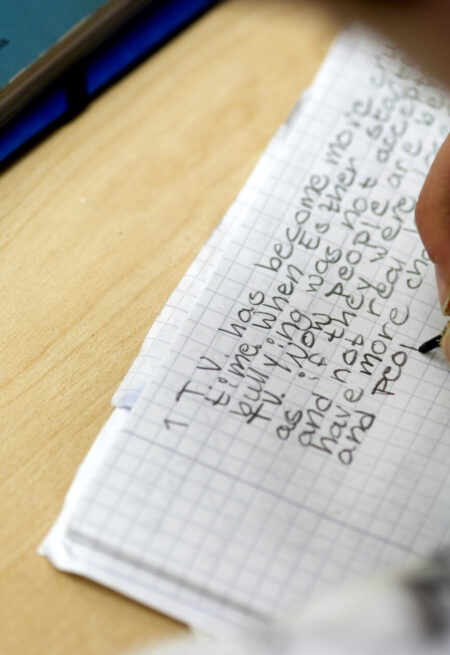 1 TV has become more
time. When Esther star
bullying was not accep
TV. Now people are be
as if they were
and not real
have more cha
and peo